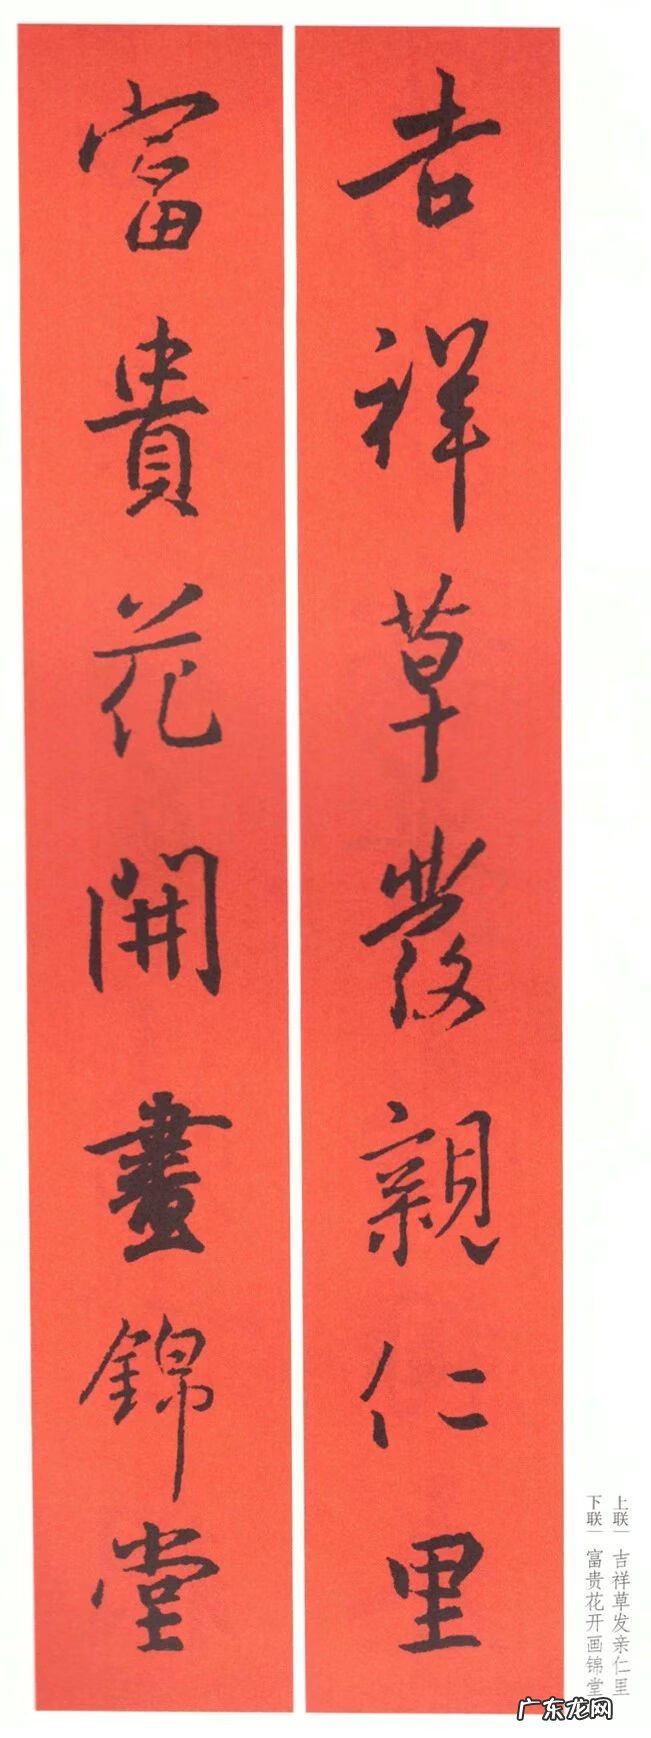 吉祥草發親仁里
富貴花開畫錦堂
上联｜吉祥草发亲仁里
下联｜富贵花开画锦堂
广东龙网